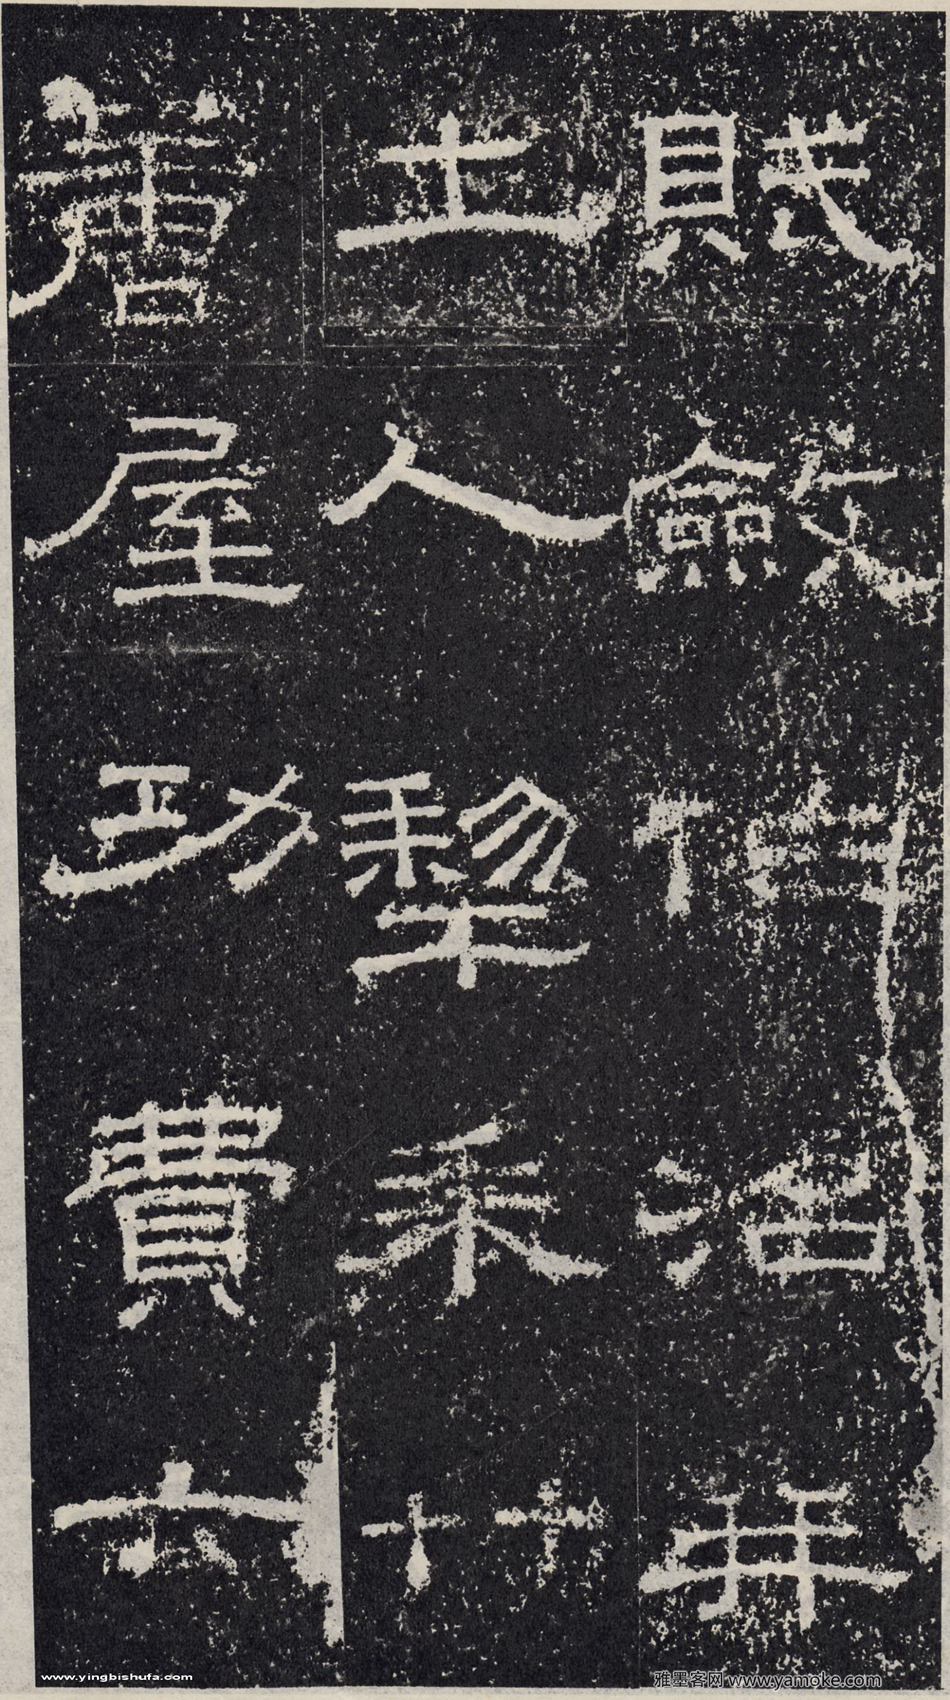 賦斂作治并
土人犂耒艹
蓎屋功費六
www.yingbishufa.com
雅墨客网 www.yamoke.com